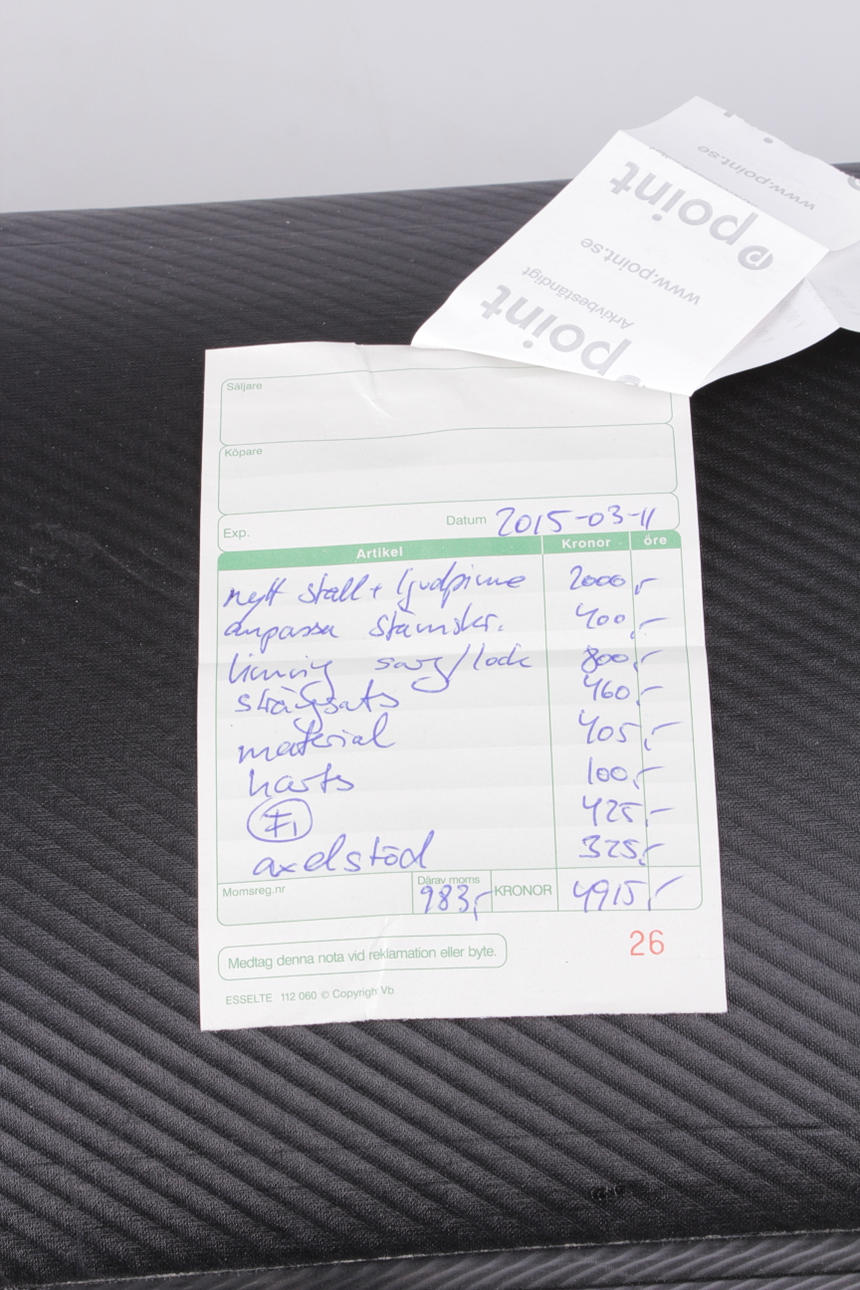 www.point.se
point
www.point.se
Arkivbeständigt
point
Säljare
Köpare
Exp. Datum 2015-03-11
Artikel Kronor öre
nytt stall + ljudpinne 2000,-
anpassa stämskr. 400,-
limning sarg/lock 800,-
strängsats 460,-
material 405,-
harts 100,-
425,-
axelstöd 325,-
Momsreg.nr Därav moms 983,- KRONOR 4915,-
26
Medtag denna nota vid reklamation eller byte.
ESSELTE 112 060 © Copyright Vb